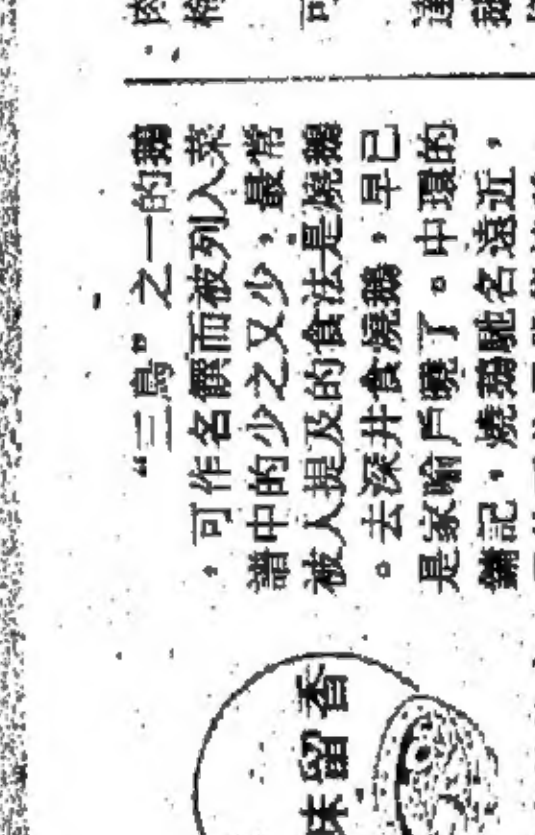 “三鳥”之一的鵝
，可作名饌而被列入菜
譜中的少之又少，最常
被人提及的食法是燒鵝
。去深井食燒鵝，早已
是家喻戶曉了。中環的
鏞記，燒鵝馳名遠近，
味留香